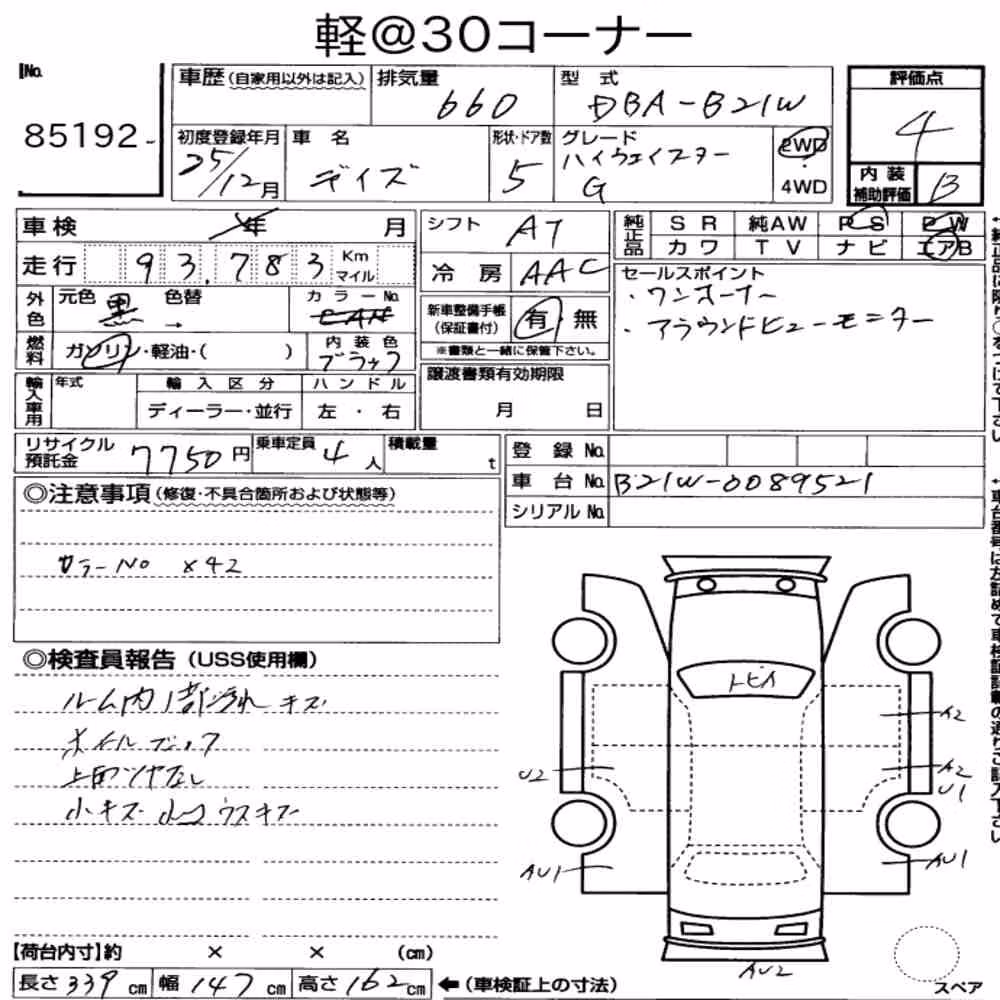 軽@30コーナー
No.
85192
車歴 (自家用以外は記入)
排気量
660
型式
DBA-B21W
評価点
4
初度登録年月
25/12月
車名
デイズ
形状・ドア数
5
グレード
ハイウェイスター
G
2WD
・
4WD
内装
補助評価
B
車検 年 月
走行 93,783 Km
マイル
シフト AT
冷房 AAC
純正品
SR 純AW PS PW
カワ TV ナビ エアB
セールスポイント
・ワンオーナー
・アラウンドビューモニター
外色
元色 黒 色替 →
カラーNo.
新車整備手帳
(保証書付)
有 無
※書類と一緒に保管下さい。
燃料
ガソリン・軽油・( )
内装色
ブラック
輸入車用
年式
輸入区分
ディーラー・並行
ハンドル
左・右
譲渡書類有効期限
月 日
リサイクル
預託金
7750円
乗車定員
4人
積載量
t
登録No.
車台No. B21W-0089521
シリアルNo.
◎注意事項 (修復・不具合箇所および状態等)
カラーNo X42
◎検査員報告 (USS使用欄)
ルーム内1部汚れ キズ
ホイルブラック
上面ツヤなし
小キズ 小凹 ウスキズ
トビイ
A2
A2
U1
U2
AU1
AU1
AU2
スペア
【荷台内寸】約 × × (cm)
長さ 339 cm 幅 147 cm 高さ 162 cm ←(車検証上の寸法)